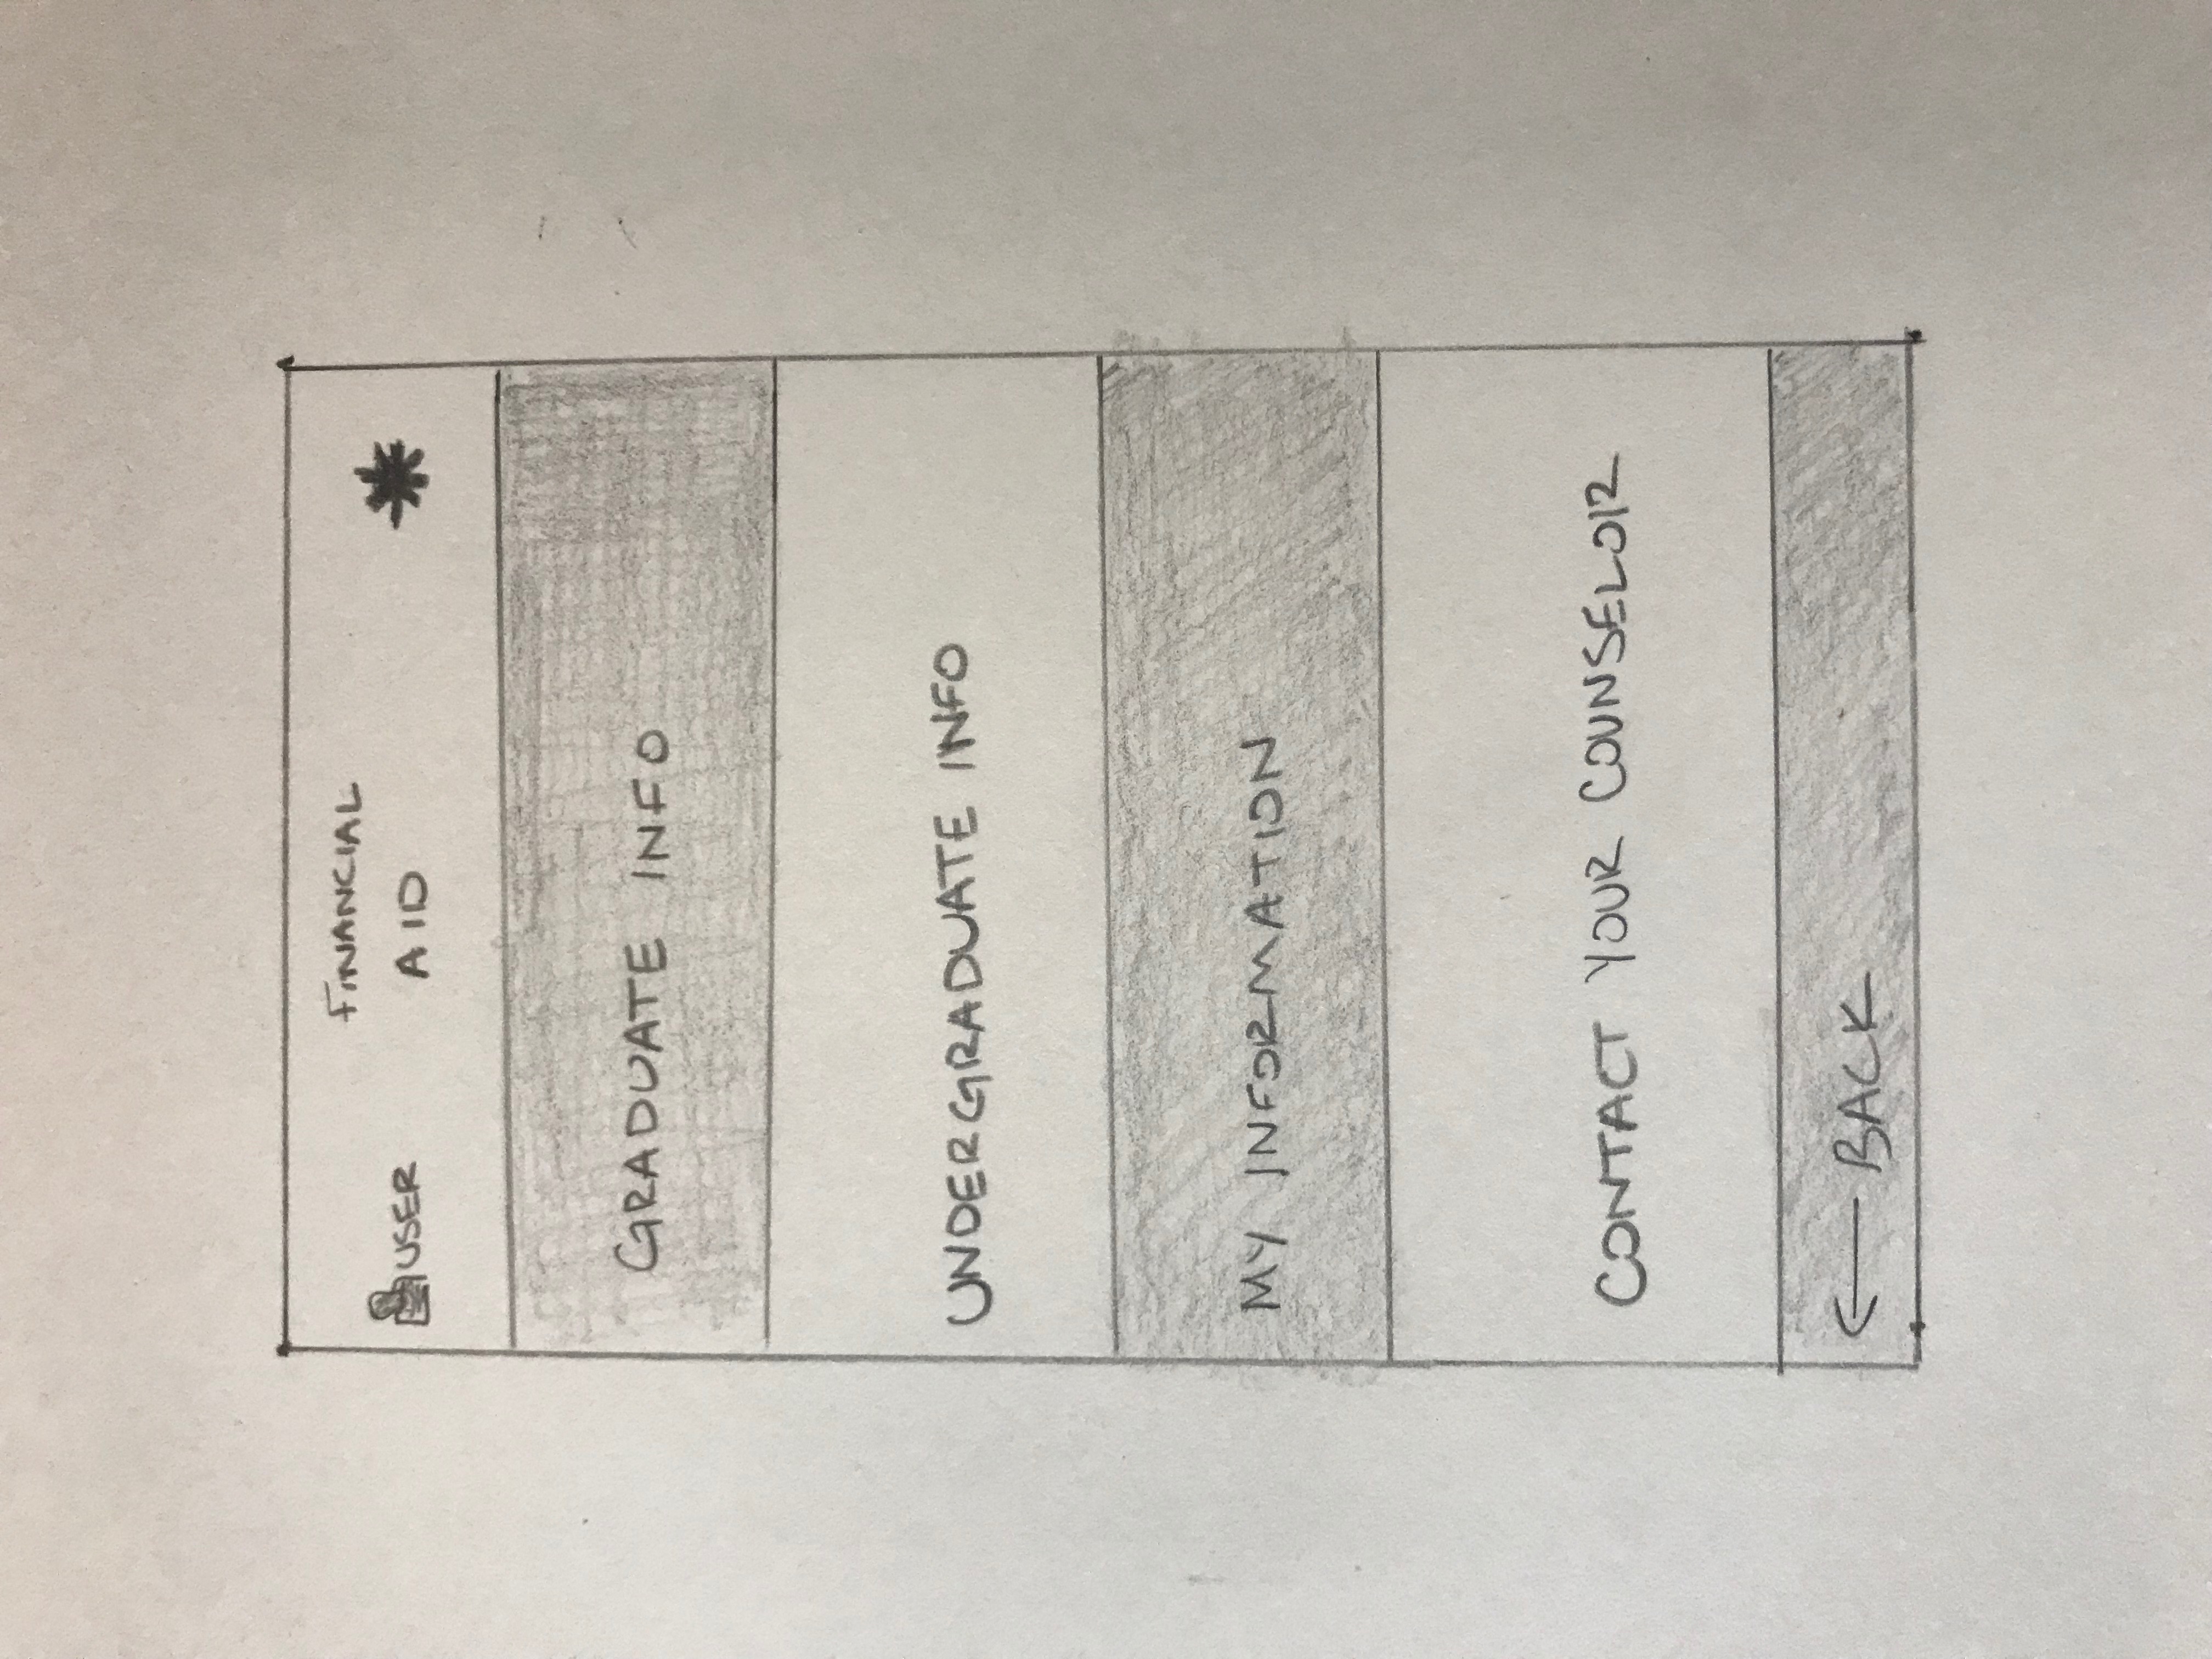 FINANCIAL
AID
USER
GRADUATE INFO
UNDERGRADUATE INFO
MY INFORMATION
CONTACT YOUR COUNSELOR
BACK